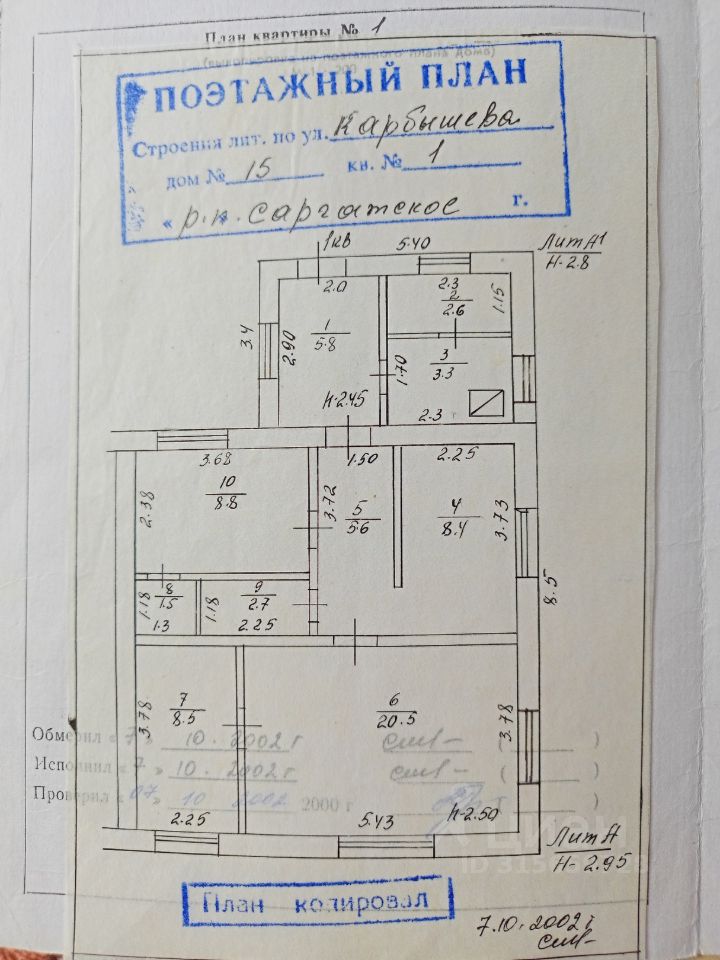 План квартиры № 1
ПОЭТАЖНЫЙ ПЛАН
Строения лит. по ул. Карбышева
дом № 15 кв. № 1
« р.п. Саргатское г.
1кв 5.40 Лит А1
Н-2.8
2.0 2.3 2 2.6 1.15
3.4 2.90 1 5.8 1.70 3 3.3
h-2.45 2.3
3.68 1.50 2.25
2.38 10 8.8 3.72 5 5.6 4 8.4 3.73
8.5
1.18 8 1.5 1.18 9 2.7
1.3 2.25
3.78 7 8.5 6 20.5 3.78
Обмерил « 7 » 10. 2002 г
Исполнил « 7 » 10. 2002 г
Проверил « 07 » 10 2002 2000 г
2.25 5.43 h-2.50
Лит А
Н- 2.95
План копировал
7.10. 2002 г